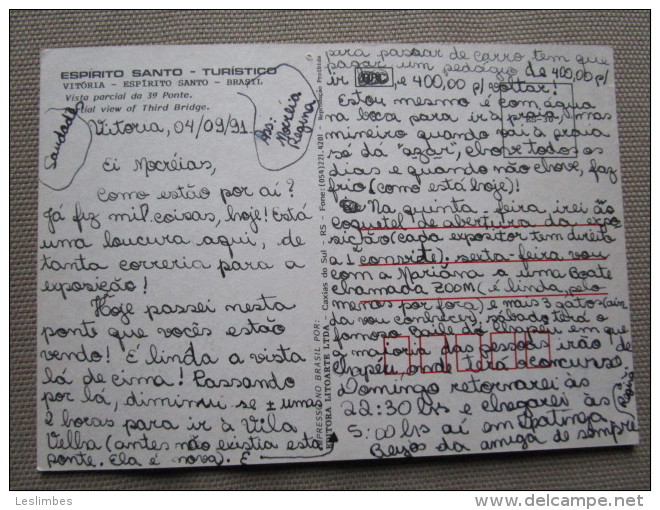 ESPÍRITO SANTO - TURÍSTICO
VITÓRIA - ESPÍRITO SANTO - BRASIL
Vista parcial da 3ª Ponte.
Partial view of Third Bridge.
Saudades
Vitoria, 04/09/91.
Ass: Mocréia Regina
Ei Mocréias,
Como estão por aí?
Já fiz mil coisas, hoje! Está
uma loucura aqui, de
tanta correria para a
exposição!
Hoje passei nesta
ponte que vocês estão
vendo! E linda a vista
lá de cima! Passando
por lá, diminui se ± umas
horas para ir à Vila
Velha (antes não existia esta
ponte. Ela é nova). E
IMPRESSO NO BRASIL POR:
EDITORA LITOARTE LTDA. - Caxias do Sul - RS - Fone: (054) 221.4201 - Reprodução Proibida
para passar de carro tem que
pagar um pedágio de 400,00 p/
ir, e 400,00 p/ voltar!
Estou mesmo é com água
na boca para ir à praia, mas
mineiro quando vai à praia
se dá "azar", chove todos os
dias e quando não chove, faz
frio (como está hoje)!
Na quinta-feira, irei ao
coquetel de abertura da expo
sição (cada expositor tem direito
a 1 convite); sexta-feira vou
com a Mariana a uma Boate
chamada ZOOM (é linda, pelo
menos por fora) e mais 3 gatos (ain
da vou conhecer); sábado terá o
famoso Baile do Chapéu em que
a maioria das pessoas irão de
chapéu onde terá o concurso
Domingo retornarei às
22:30 hs e chegarei às
5:00 hs aí em Ipatinga
Beijos da amiga de sempre
Regina
Leslimbes
www.delcampe.net